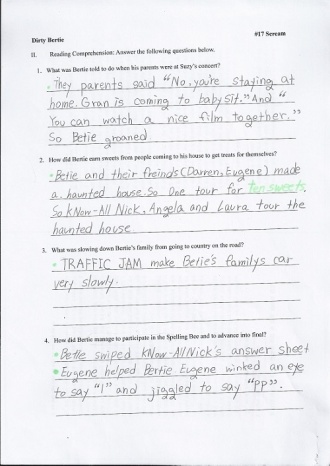 Dirty Bertie #17 Scream
II. Reading Comprehension: Answer the following questions below.
1. What was Bertie told to do when his parents were at Suzy's concert?
• They parents said "No, you're staying at
home. Gran is coming to babysit." And "
You can watch a nice film together."
So Betie groaned.
2. How did Bertie earn sweets from people coming to his house to get treats for themselves?
• Betie and their freinds (Darren, Eugene) made
a haunted house. So One tour for ten sweets.
So kNow-All Nick, Angela and Laura tour the
haunted house.
3. What was slowing down Bertie's family from going to country on the road?
• TRAFFIC JAM make Betie's familys car
very slowly.
4. How did Bertie manage to participate in the Spelling Bee and to advance into final?
• Betie swiped kNow-All Nick's answer sheet
• Eugene helped Bertie Eugene winked an eye
to say "I" and jiggled to say "PP".